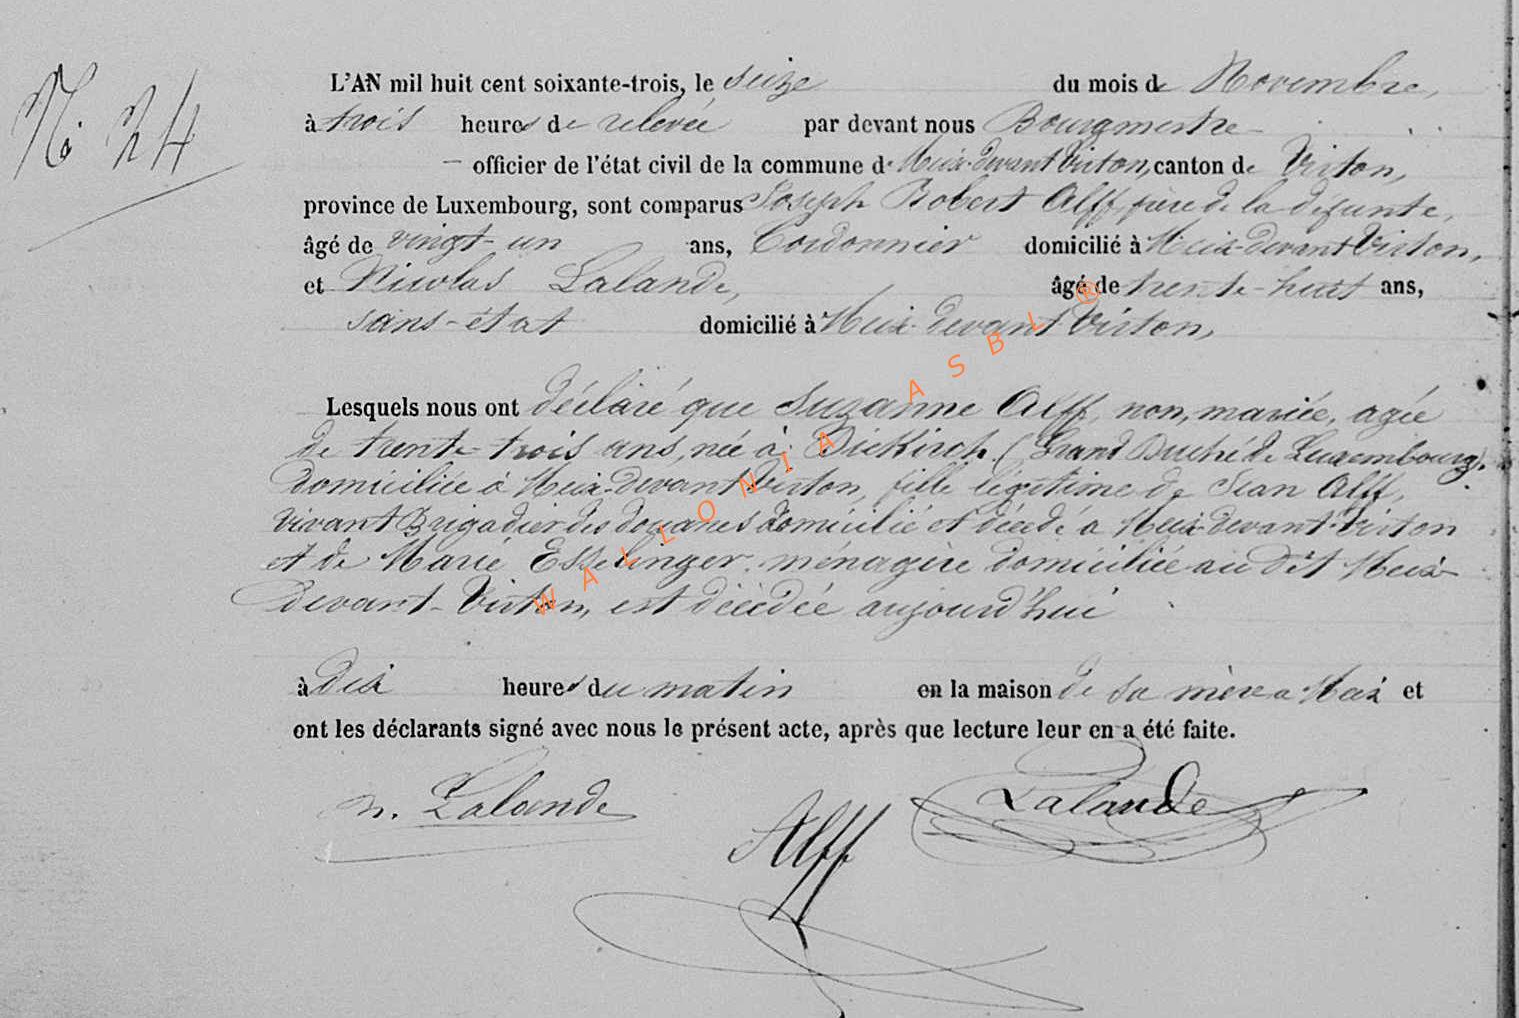 No 24
L'AN mil huit cent soixante-trois, le seize du mois de Novembre,
à trois heures de relevée par devant nous Bourgmestre
officier de l'état civil de la commune de Meix-devant Virton, canton de Virton,
province de Luxembourg, sont comparus Joseph Robert Alff, frère de la defunte,
âgé de vingt-un ans, Cordonnier domicilié à Meix-devant Virton,
et Nicolas Lalande, âgé de trente-huit ans,
sans-état domicilié à Meix-devant Virton,
Lesquels nous ont déclaré que Suzanne Alff, non, mariée, agée
de trente-trois ans, née à Diekirch (Grand Duché de Luxembourg).
Domiciliée à Meix-Devant Virton, fille légitime de Jean Alff,
vivant Brigadier des douanes domicilié et décédé à Meix-devant-Virton
et de Marie Esselinger, ménagère domiciliée au dit Meix-
devant-Virton, est décédée aujourd'hui
à dix heures du matin en la maison de sa mère a Meix et
ont les déclarants signé avec nous le présent acte, après que lecture leur en a été faite.
n. Lalande
Alff
Lalande
WALLONIA ASBL ®